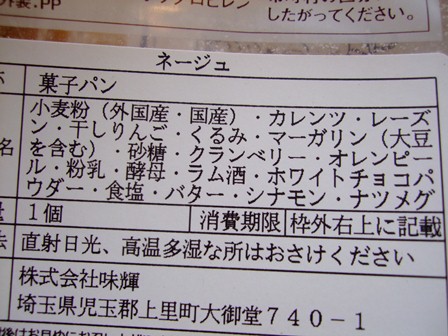 外装:PP
したがってください。
ネージュ
菓子パン
小麦粉（外国産・国産）・カレンツ・レーズ
ン・干しりんご・くるみ・マーガリン（大豆
名 を含む）・砂糖・クランベリー・オレンピー
ル・粉乳・酵母・ラム酒・ホワイトチョコパ
ウダー・食塩・バター・シナモン・ナツメグ
量 1個 消費期限 枠外右上に記載
法 直射日光、高温多湿な所はおさけください
株式会社味輝
埼玉県児玉郡上里町大御堂740-1